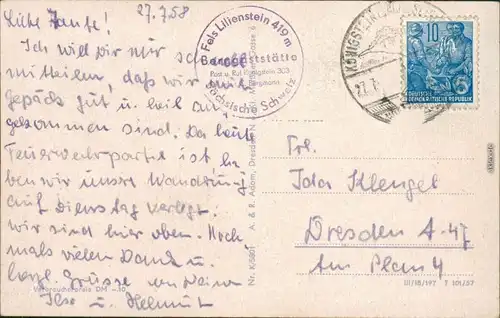 27.7.58
Liebe Tante!
Ich will Dir nur schnell
mitteilen, daß wir mit
Gepäck gut u. heil an-
gekommen sind. Da heute
Feuerwehrpartie ist ha-
ben wir unsre Wandrung
auf Dienstag verlegt.
Wir sind hier oben. Noch-
mals vielen Dank u.
herzl. Grüsse von Deiner
Ilse u. Helmut
Verbraucherpreis DM -.10
Fels Lilienstein 419 m
Berggaststätte
Post u. Ruf Königstein 303
Bergmann
Sächsische Schweiz
KÖNIGSTEIN
27.7.
10
DEUTSCHE
DEMOKRATISCHE REPUBLIK
5
Nr. K/5801 A. & R. Adam, Dresden N
Frl.
Ida Klengel
Dresden A-47
Am Plan 4
III/18/197 T 101/57